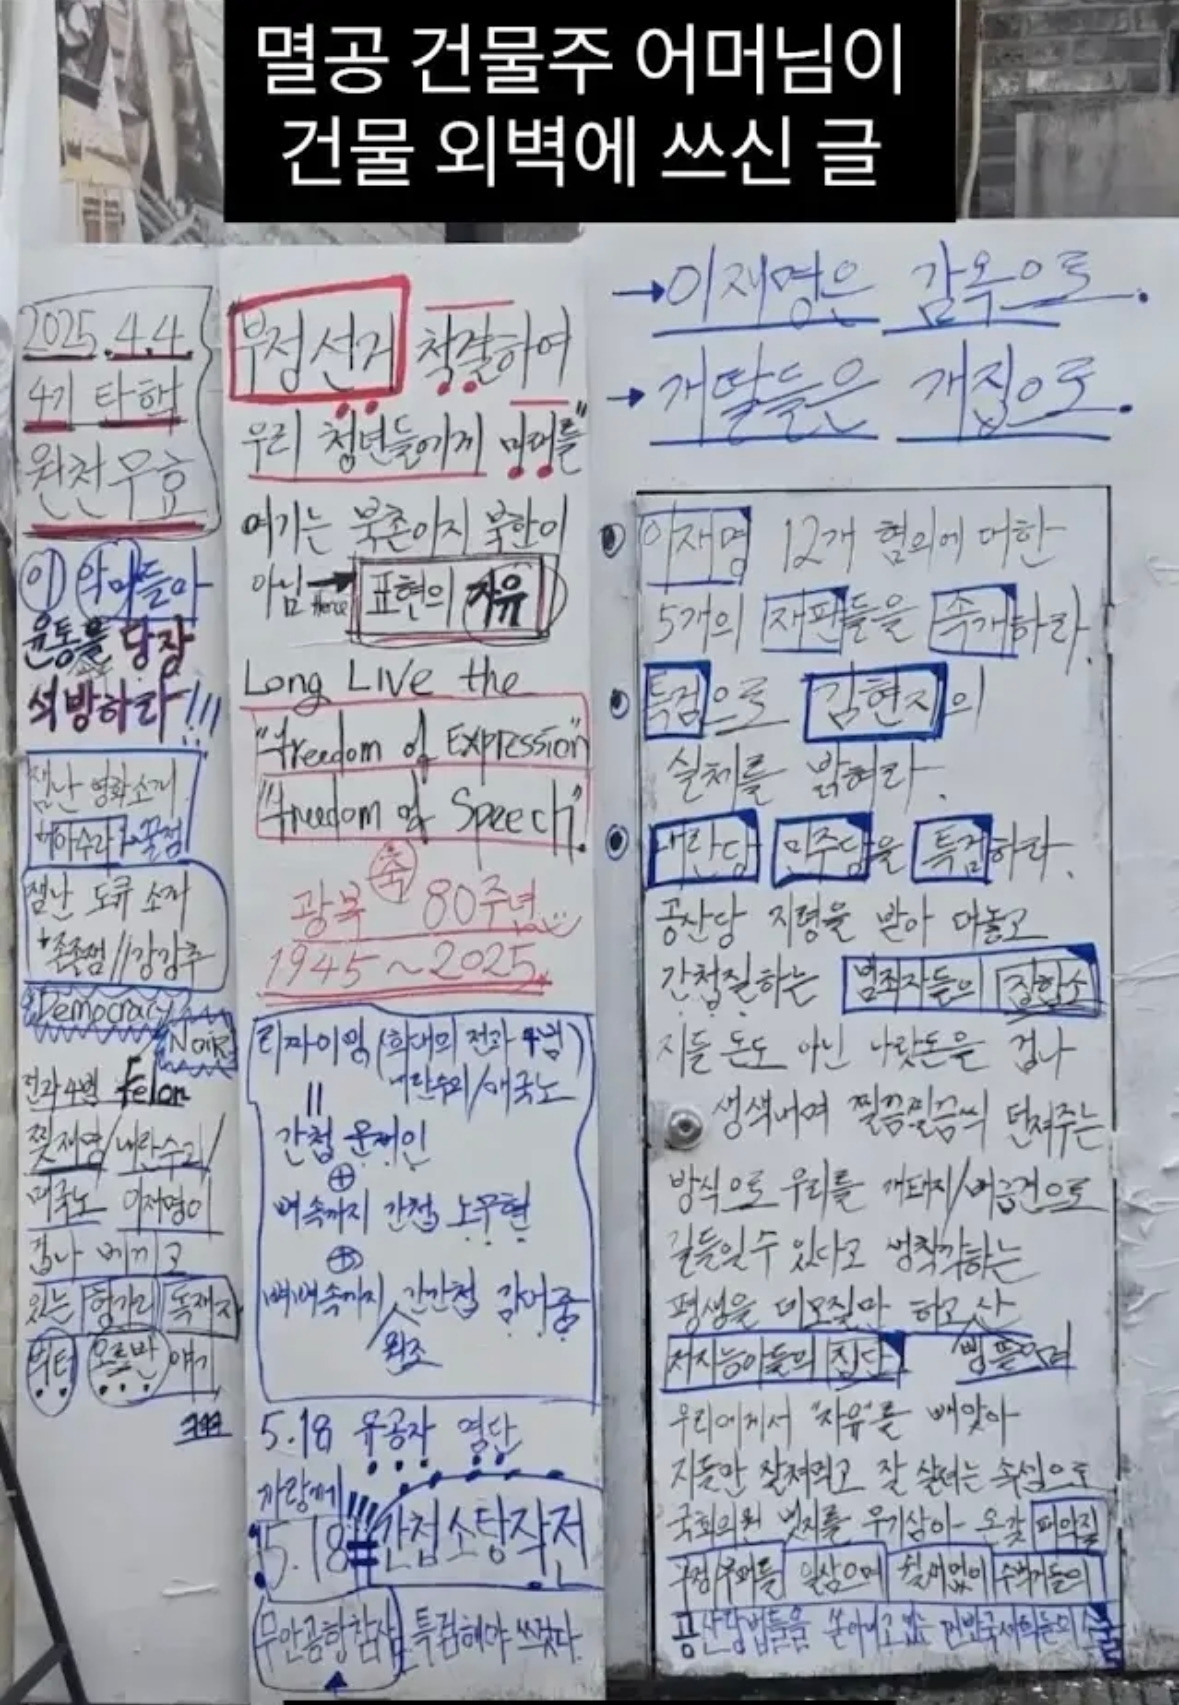 멸공 건물주 어머님이
건물 외벽에 쓰신 글
2025.4.4.
4기 탄핵
원천무효
이 악마들아
윤통을 당장
석방하라!!!
잼난 영화소개
"아수라" 꿀잼
잼난 도큐 소개
*존존쩜//강강추
Democracy
Noir
전과4범 felon
찢재명/내란수괴/
매국노 이재명이
겁나 베끼고
있는 헝가리 독재자
빅터 오르반 얘기
ㅋㅋㅋ
"부정선거 척결하여
우리 청년들에게 미래를"
여기는 북촌이지 북한이
아님 → Hence 표현의 자유
Long Live the
"freedom of Expression"
"freedom of Speech".
축
광복 80주년
1945~2025
리짜이밍 (희대의 전과 4범)
내란수괴/매국노
||
간첩 문재인
⊕
뼈속까지 간첩 노무현
⊕
뼈뼈속까지 간간첩 김대중
원조
5.18 유공자 명단
까랑께!!!
5.18 = 간첩소탕작전
무안공항참사 특검해야 쓰겄다.
→이재명은 감옥으로.
→개딸들은 개집으로.
이재명 12개 혐의에 대한
5개의 재판들을 속개하라.
특검으로 김현지의
실체를 밝혀라.
내란당 민주당을 특검하라.
공산당 지령을 받아 대놓고
간첩질하는 범죄자들의 집합소
지들 돈도 아닌 나랏돈을 겁나
생색내며 찔끔찔끔씩 던져주는
방식으로 우리를 개돼지/버금건으로
길들일 수 있다고 생착각하는
평생을 데모질만 하고 산
저지능아들의 집단 삥뜯으며
우리에게서 "자유"를 빼앗아
지들만 잘쳐먹고 잘 살려는 속셈으로
국회의원 뱃지를 무기삼아 온갖 패악질
부정부패를 일삼으며 쉴새없이
공산당법들을 쏟아내고 있는 반국가세력들의